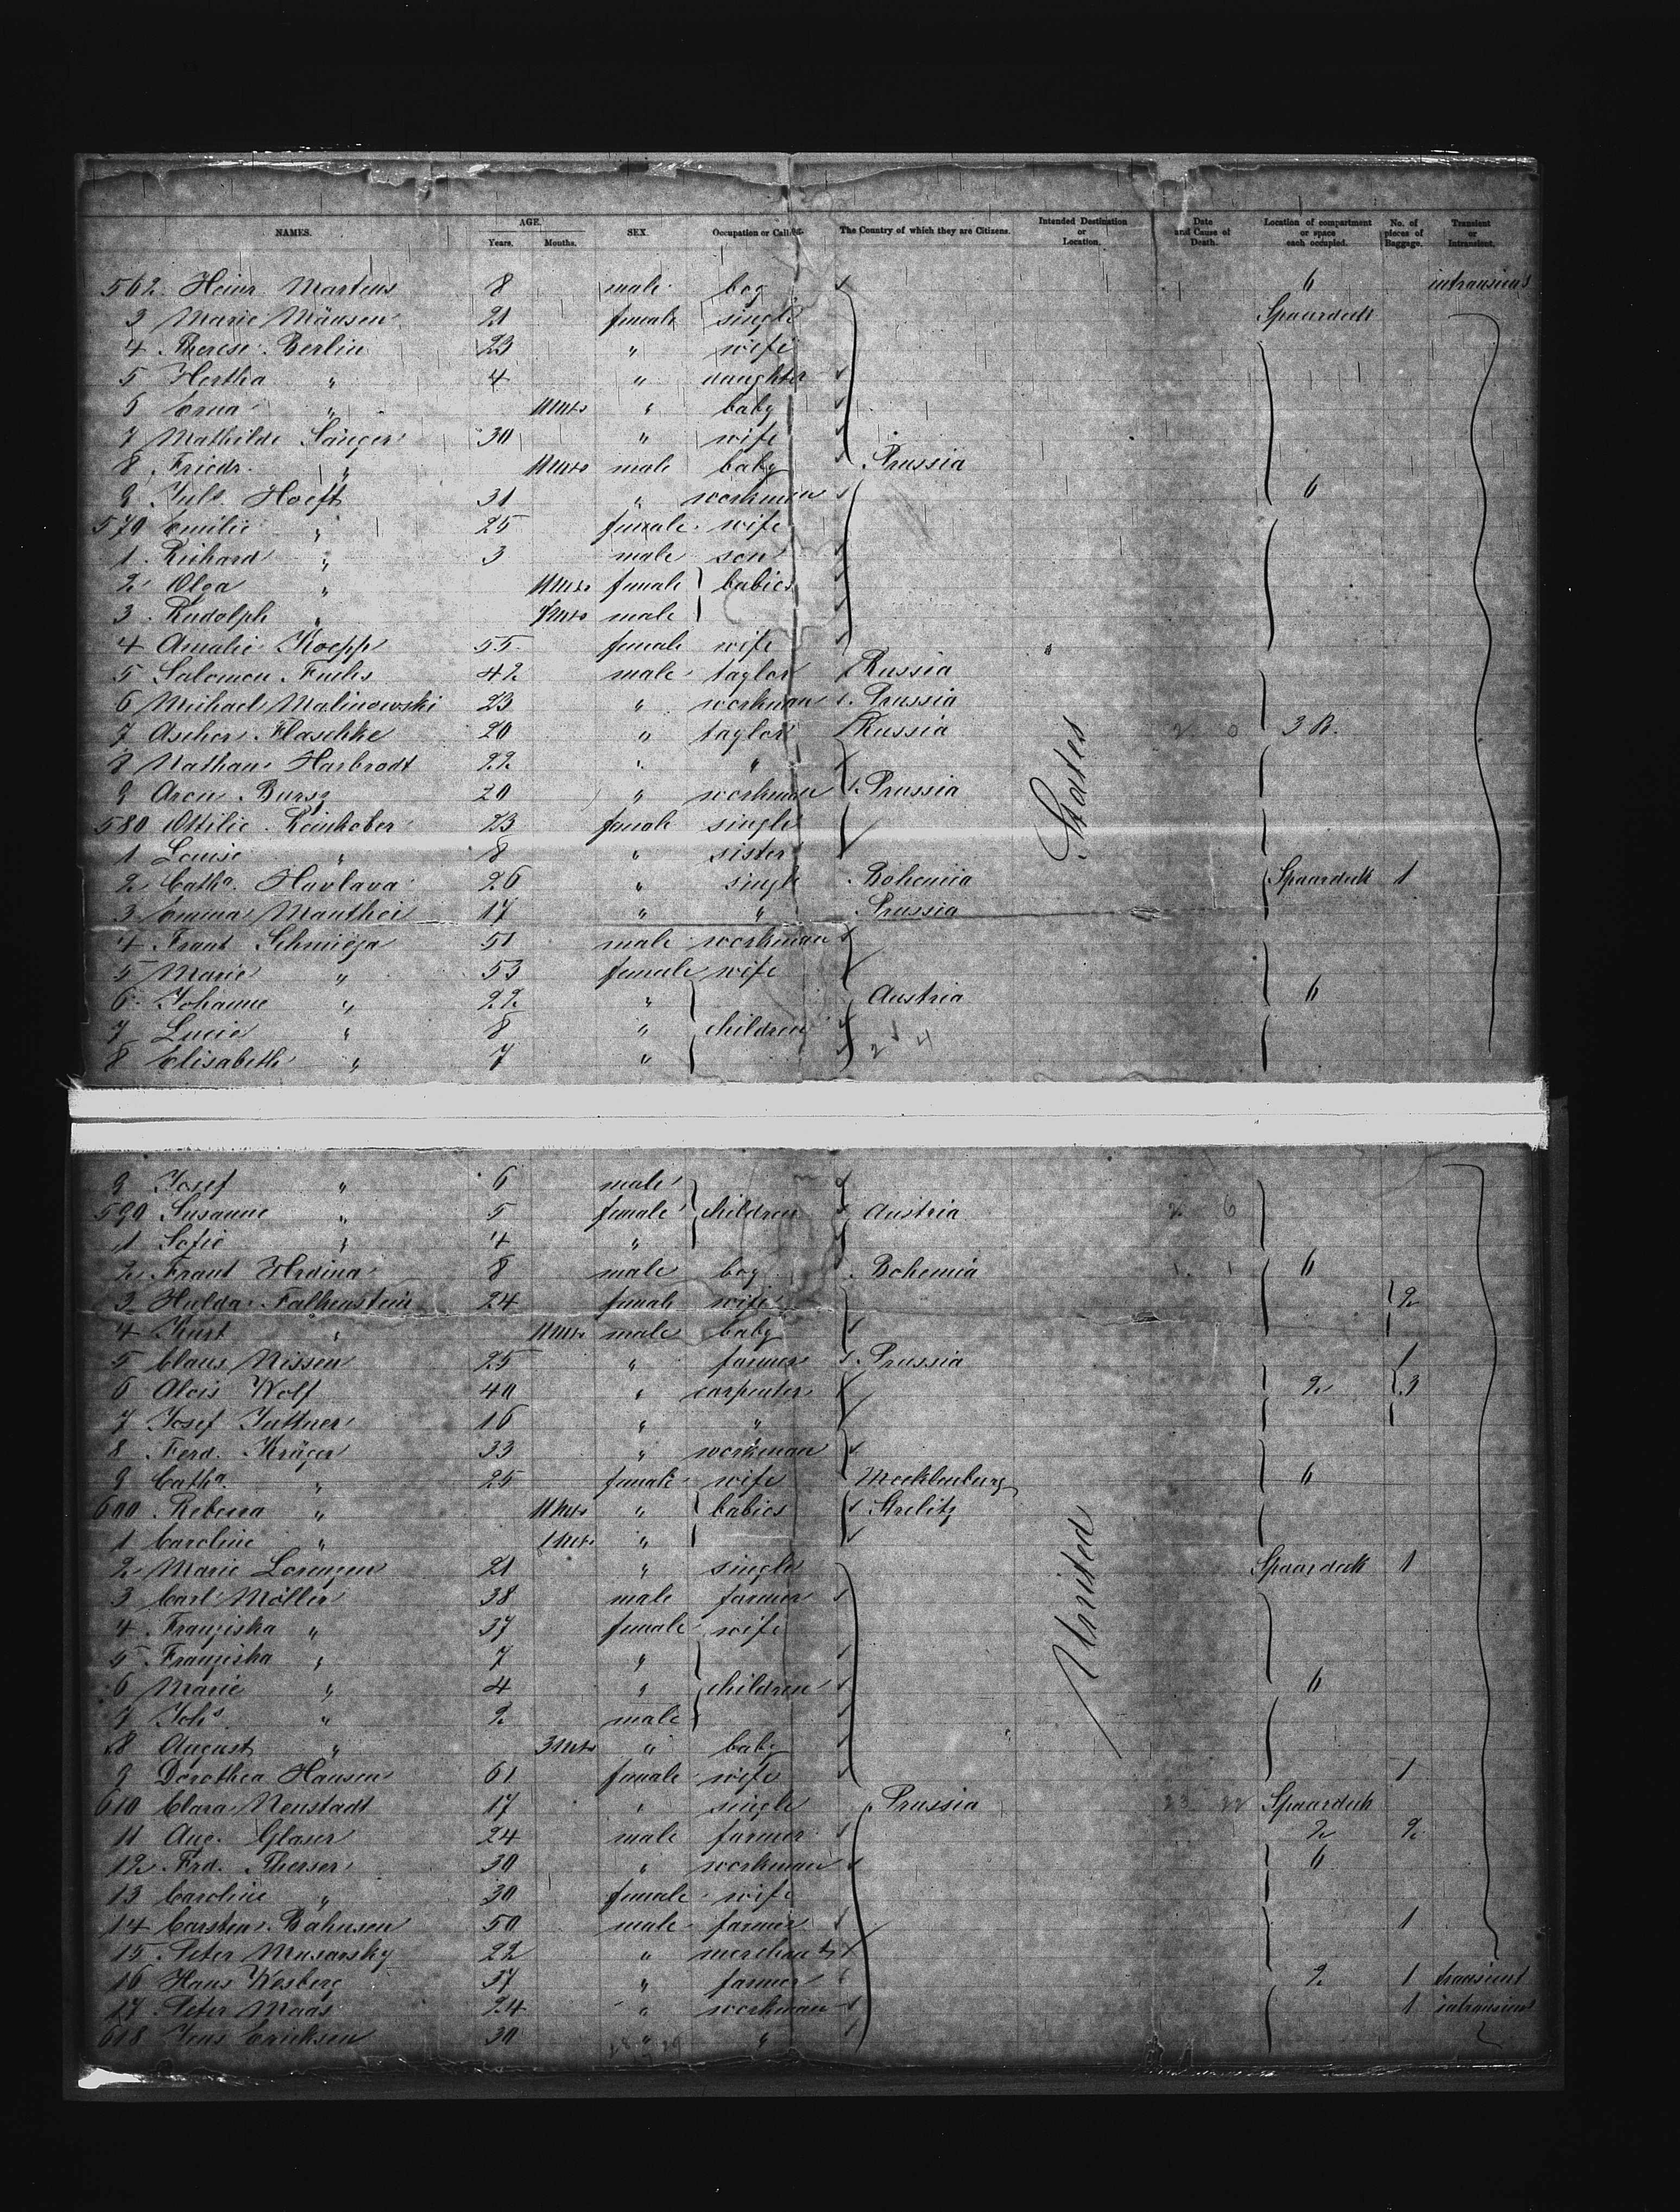 NAMES. AGE. Years. Months. SEX. Occupation or Calling. The Country of which they are Citizens. Intended Destination or Location. Date and Cause of Death. Location of compartment or space each occupied. No. of pieces of Baggage. Transient or Intransient.
562 Heinr. Martens 8 male boy 6 intransient
3 Marie Mäusen 21 female single Spaardeck
4 Therese Berlin 23 " wife
5 Hertha " 4 " daughter
6 Erna " 11 mts " baby
7 Mathilde Sänger 30 " wife
8 Friedr. " 11 mts male baby Prussia
9 Juls. Hoeft 31 " workman 6
570 Emilie " 25 female wife
1 Richard " 3 male son
2 Olga " 11 mts female babies
3 Rudolph " mts male
4 Amalie Koepp 55 female wife
5 Salomon Fuchs 42 male taylor Russia
6 Michael Malinowski 23 " workman Prussia
7 Ascher Flaschke 20 " taylor Russia 2 0 3 B.
8 Nathan Harbrodt 22 " "
9 Aron Bursz 20 " workman Prussia
580 Ottilie Reinhober 23 female single
1 Louise " 8 " sister
2 Catha. Havlava 26 " single Bohemia Spaardeck 1
3 Emma Manthei 17 " " Prussia
4 Frant Schmieja 51 male workman
5 Marie " 53 female wife
6 Johanne " 22 " Austria 6
7 Lucie " 8 " children
8 Elisabeth " 7 " 2 4
9 Josef " 6 male
590 Susanne " 5 female children Austria 2 6
1 Sofie " 4 "
2 Frant Hrdina 8 male boy Bohemia 1 1 6
3 Hulda Falkenstein 24 female wife 2
4 Kurt " 11 mts male baby
5 Claus Nissen 25 " farmer Prussia 1
6 Alois Wolf 40 " carpenter 2 3
7 Josef Juttner 16 " "
8 Ferd. Krüger 33 " workman
9 Catha. " 25 female wife Mecklenburg 6
600 Rebecca " 11 mts " babies Strelitz
1 Caroline " 1 mts "
2 Marie Lorenzen 21 " single Spaardeck 1
3 Carl Möller 38 male farmer
4 Franziska " 37 female wife
5 Franziska " 7 "
6 Marie " 4 " children 6
7 Johs. " 2 male
8 August " 3 mts " baby
9 Dorothea Hansen 61 female wife 1
610 Clara Neustadt 17 " single Prussia 23 22 Spaardeck
11 Aug. Glaser 24 male farmer 2 2
12 Frd. Therser 30 " workman 6
13 Caroline " 30 female wife
14 Carsten Bahnsen 50 male farmer 1
15 Peter Musarsky 22 " merchant
16 Hans Wesberg 37 " farmer 2 1 transient
17 Peter Maas 24 " workman 1 intransient
618 Jens Ericksen 30 " "
United States